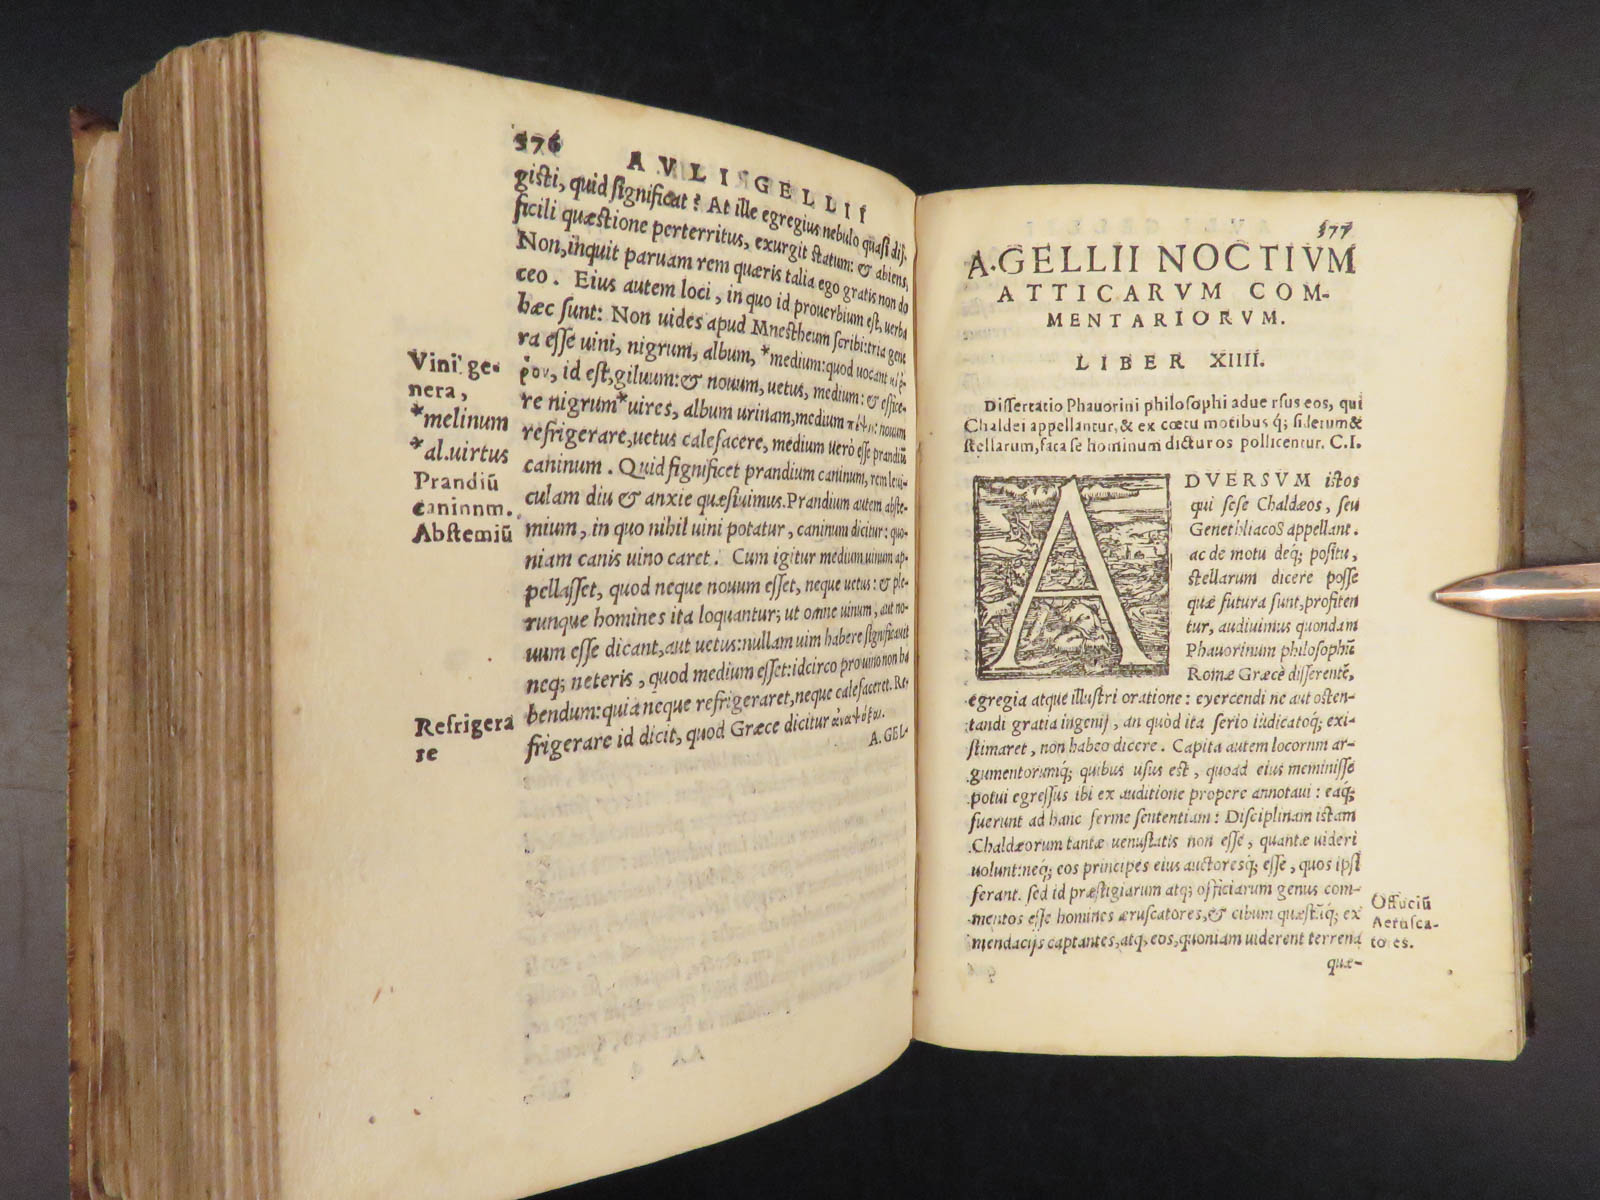 576
AVLI GELLII
gisti, quid significat? At ille egregius nebulo quasi dif-
ficili quæstione perterritus, exurgit statum: & abiens,
Non, inquit paruam rem quæris talia ego gratis non do
ceo. Eius autem loci, in quo id prouerbium est, uerba
hæc sunt: Non uides apud Mnestheum scribi: tria gene
ra esse uini, nigrum, album, *medium: quod uocant κιῤ-
ῥον, id est, giluum: & nouum, uetus, medium: & effice-
re nigrum *uires, album urinam, medium nouum
refrigerare, uetus calefacere, medium uerò esse prandiũ
caninum. Quid significet prandium caninum, rem leui-
culam diu & anxie quæsiuimus. Prandium autem abste-
mium, in quo nihil uini potatur, caninum dicitur: quo-
niam canis uino caret. Cum igitur medium uinum ap-
pellasset, quod neque nouum esset, neque uetus: & ple-
runque homines ita loquantur; ut omne uinum, aut no-
uum esse dicant, aut uetus: nullam uim habere significauit
neq; ueteris, quod medium esset: idcirco pro uino non ha
bendum: quia neque refrigeraret, neque calefaceret. Re-
frigerare id dicit, quod Græce dicitur ἀναψύχειν.
A. GEL-
Vini ge-
nera,
*melinum
*al. uirtus
Prandiũ
caninnm.
Abstemiũ
Refrigera
re
577
A. GELLII NOCTIVM
ATTICARVM COM-
MENTARIORVM.
LIBER XIIII.
Dissertatio Phauorini philosophi aduersus eos, qui
Chaldei appellantur, & ex cœtu motibus q́; siderum &
stellarum, fata se hominum dicturos pollicentur. C. I.
ADVERSVM istos
qui sese Chaldæos, seu
Genethliacos appellant.
ac de motu deq; positu,
stellarum dicere posse
quæ futura sunt, profiten
tur, audiuimus quondam
Phauorinum philosophũ
Romæ Græcè disserentẽ,
egregia atque illustri oratione: exercendi ne aut osten-
tandi gratia ingenij, an quòd ita serio iudicatoq; exi-
stimaret, non habeo dicere. Capita autem locornm ar-
gumentorumq́; quibus usus est, quoad eius meminisse
potui egressus ibi ex auditione propere annotaui: eaq́;
fuerunt ad hanc ferme sententiam: Disciplinam istam
Chaldæorum tantæ uenustatis non esse, quantæ uideri
uolunt: neq́; eos principes eius auctoresq́; esse, quos ipsi
ferant. sed id præstigiarum atq; officiarum genus com-
mentos esse homines æruscatores, & cibum quæstũq́; ex
mendacijs captantes, atq, eos, quoniam uiderent terrena
quæ-
Offuciũ
Aerusca-
tores.